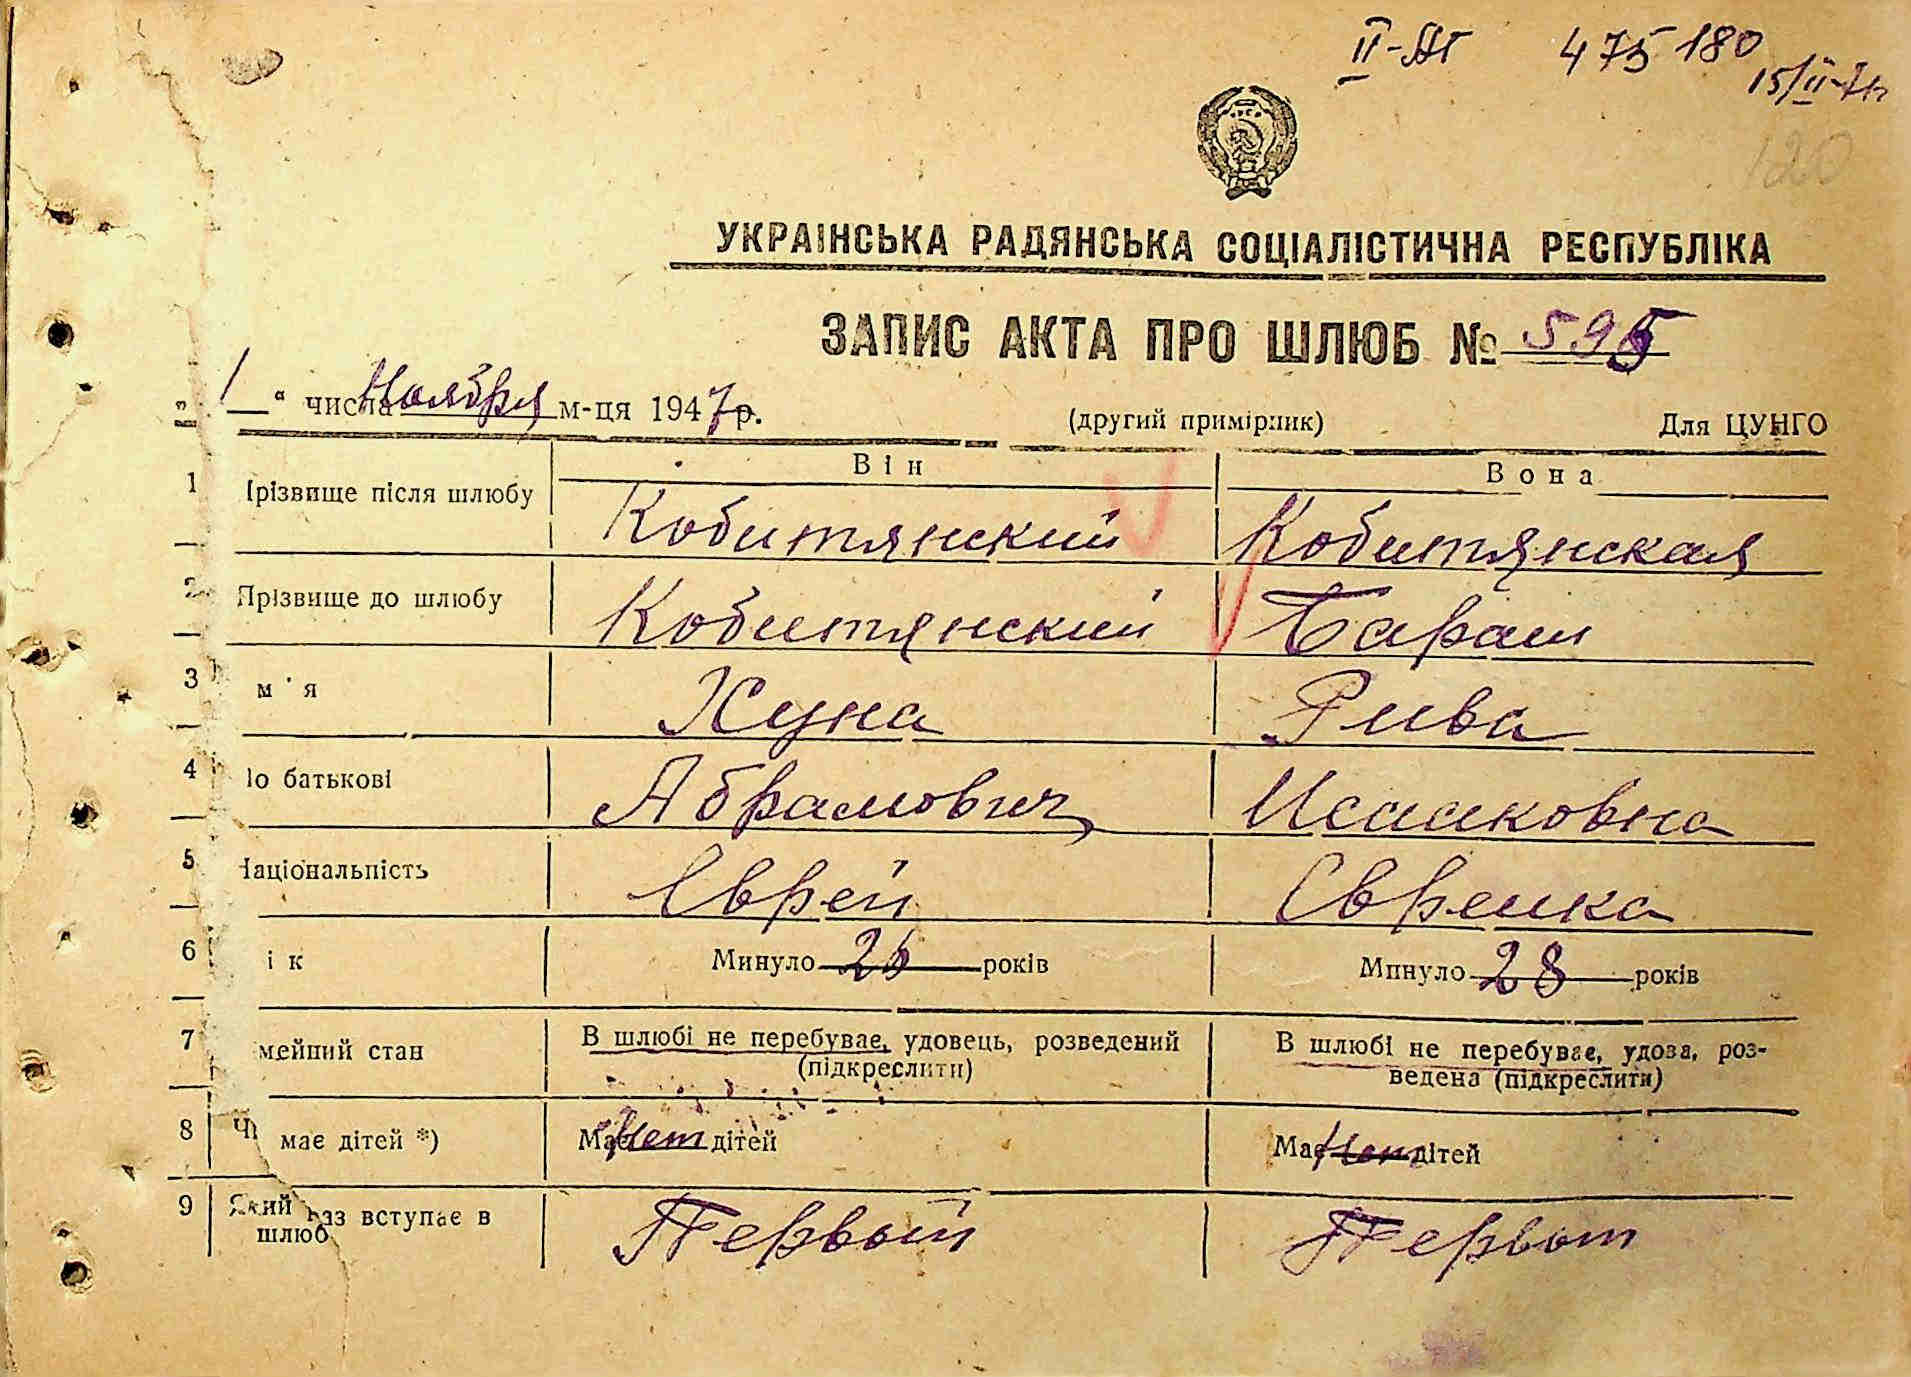 II-АГ 475180
15/II-71г
120
УКРАЇНСЬКА РАДЯНСЬКА СОЦІАЛІСТИЧНА РЕСПУБЛІКА
ЗАПИС АКТА ПРО ШЛЮБ № 595
" 1 " числа Ноября м-ця 1947 р. (другий примірник) Для ЦУНГО
Він Вона
1 Прізвище після шлюбу Кобитянский Кобитянская
2 Прізвище до шлюбу Кобитянский Бараш
3 м'я Хуна Рива
4 По батькові Абрамович Исааковна
5 Національність Еврей Еврейка
6 ік Минуло 26 років Минуло 28 років
7 мейний стан В шлюбі не перебуває, удовець, розведений (підкреслити) В шлюбі не перебуває, удова, роз-
ведена (підкреслити)
8 Чи має дітей *) Має Нет дітей Має Нет дітей
9 Який раз вступає в шлюб Первый Первый